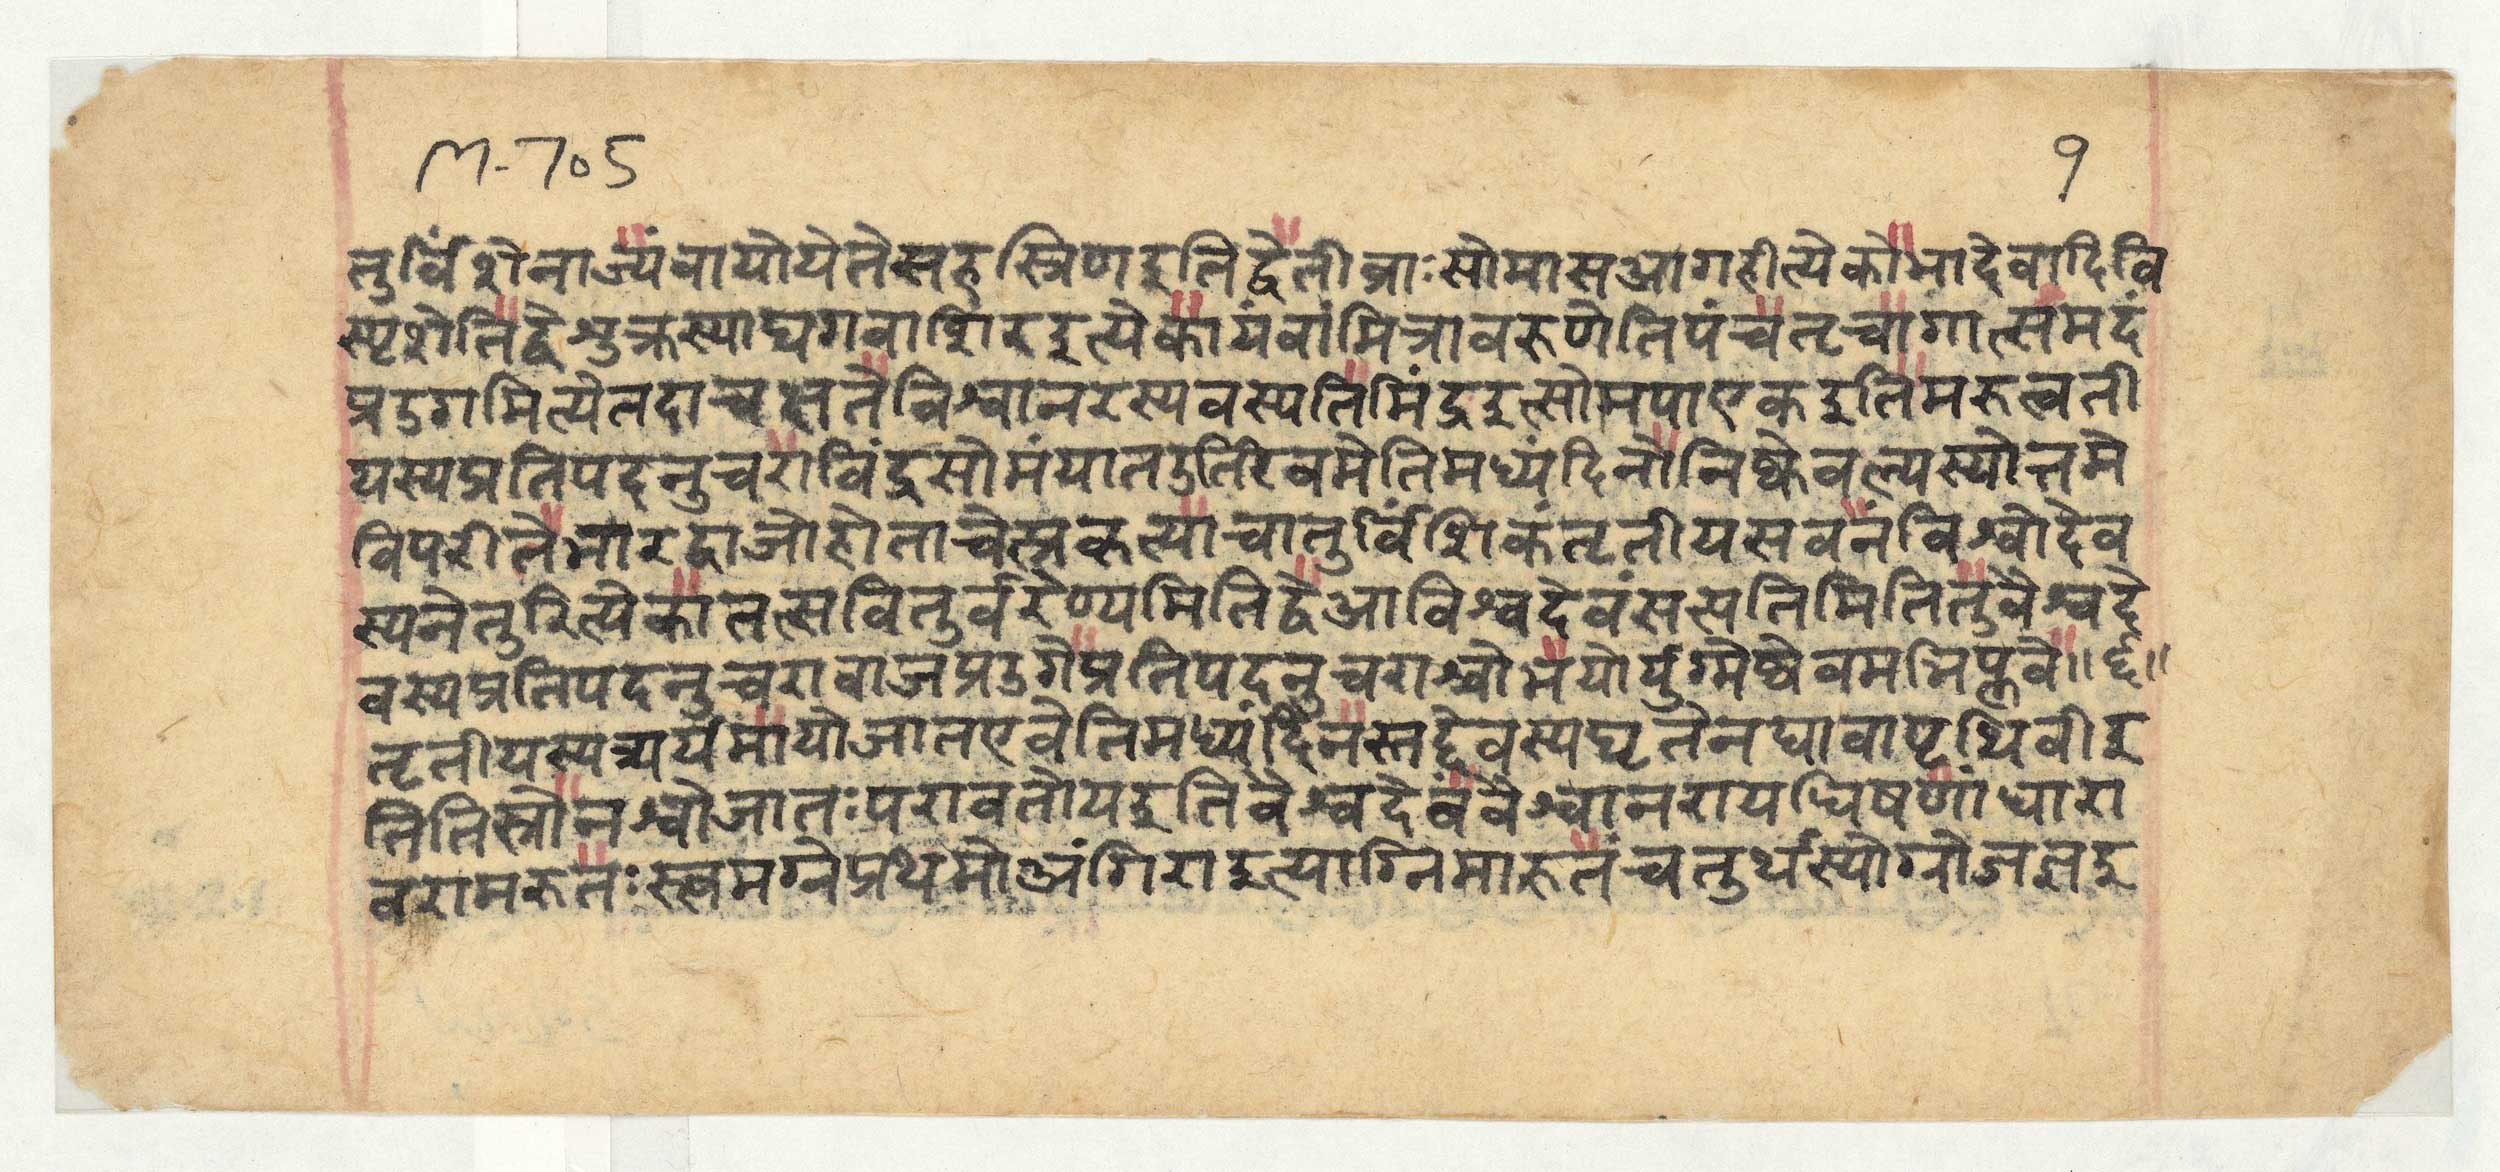 M-705 १
तुर्विंशेनाज्यंवायोयेतेसहस्त्रिणइतिद्वेतीव्राःसोमासआगहीत्येकोभादेवादिवि
स्पृशेतिद्वेशुक्रस्याद्यगवाशिरइत्येकायंवांमित्रावरुणेतिपंचतृचागार्त्समदं
प्रउगमित्येतदाचक्षतेविश्वानरस्यवस्पतिमिंद्रइत्सोमपाएकइतिमरुत्वती
यस्यप्रतिपदनुचराविंद्रसोमंयातऊतिरवमेतिमध्यंदिनोनिष्केवल्यस्योत्तमे
विपरीतेभारद्वाजोहोताचेत्प्रकृत्याचातुर्विंशिकंतृतीयसवनंविश्वोदेव
स्यनेतुरित्येकातत्सवितुर्वरेण्यमितिद्वेआविश्वदेवंसत्पतिमितितुवैश्वदे
वस्यप्रतिपदनुचरावाजप्रउगेप्रतिपदनुचराश्चोभयोर्युग्मेष्वेवमभिप्लवे॥६॥
तृतीयस्यत्र्यर्यमायोजातएवेतिमध्यंदिनस्तद्देवस्यघृतेनद्यावापृथिवीइ
तितिस्रोनश्वोजातःपरावतोयइतिवैश्वदेवंवैश्वानरायधिषणांधारा
वरामरुतःस्त्वमग्नेप्रथमोअंगिराइत्याग्निमारुतंचतुर्थस्योग्रोजज्ञइ